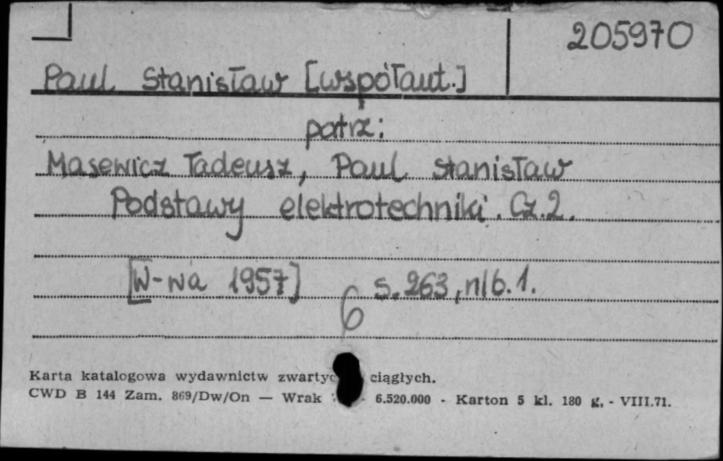 205970
Paul Stanisław [współaut.]
patrz:
Masewicz Tadeusz, Paul Stanisław
Podstawy elektrotechniki. Cz. 2.
[W-wa 1957] s. 263, nlb. 1.
6
Karta katalogowa wydawnictw ciągłych.
CWD B 144 Zam. 869/Dw/On — Wrak 6.520.000 - Karton 5 kl. 180 g. - VIII.71.